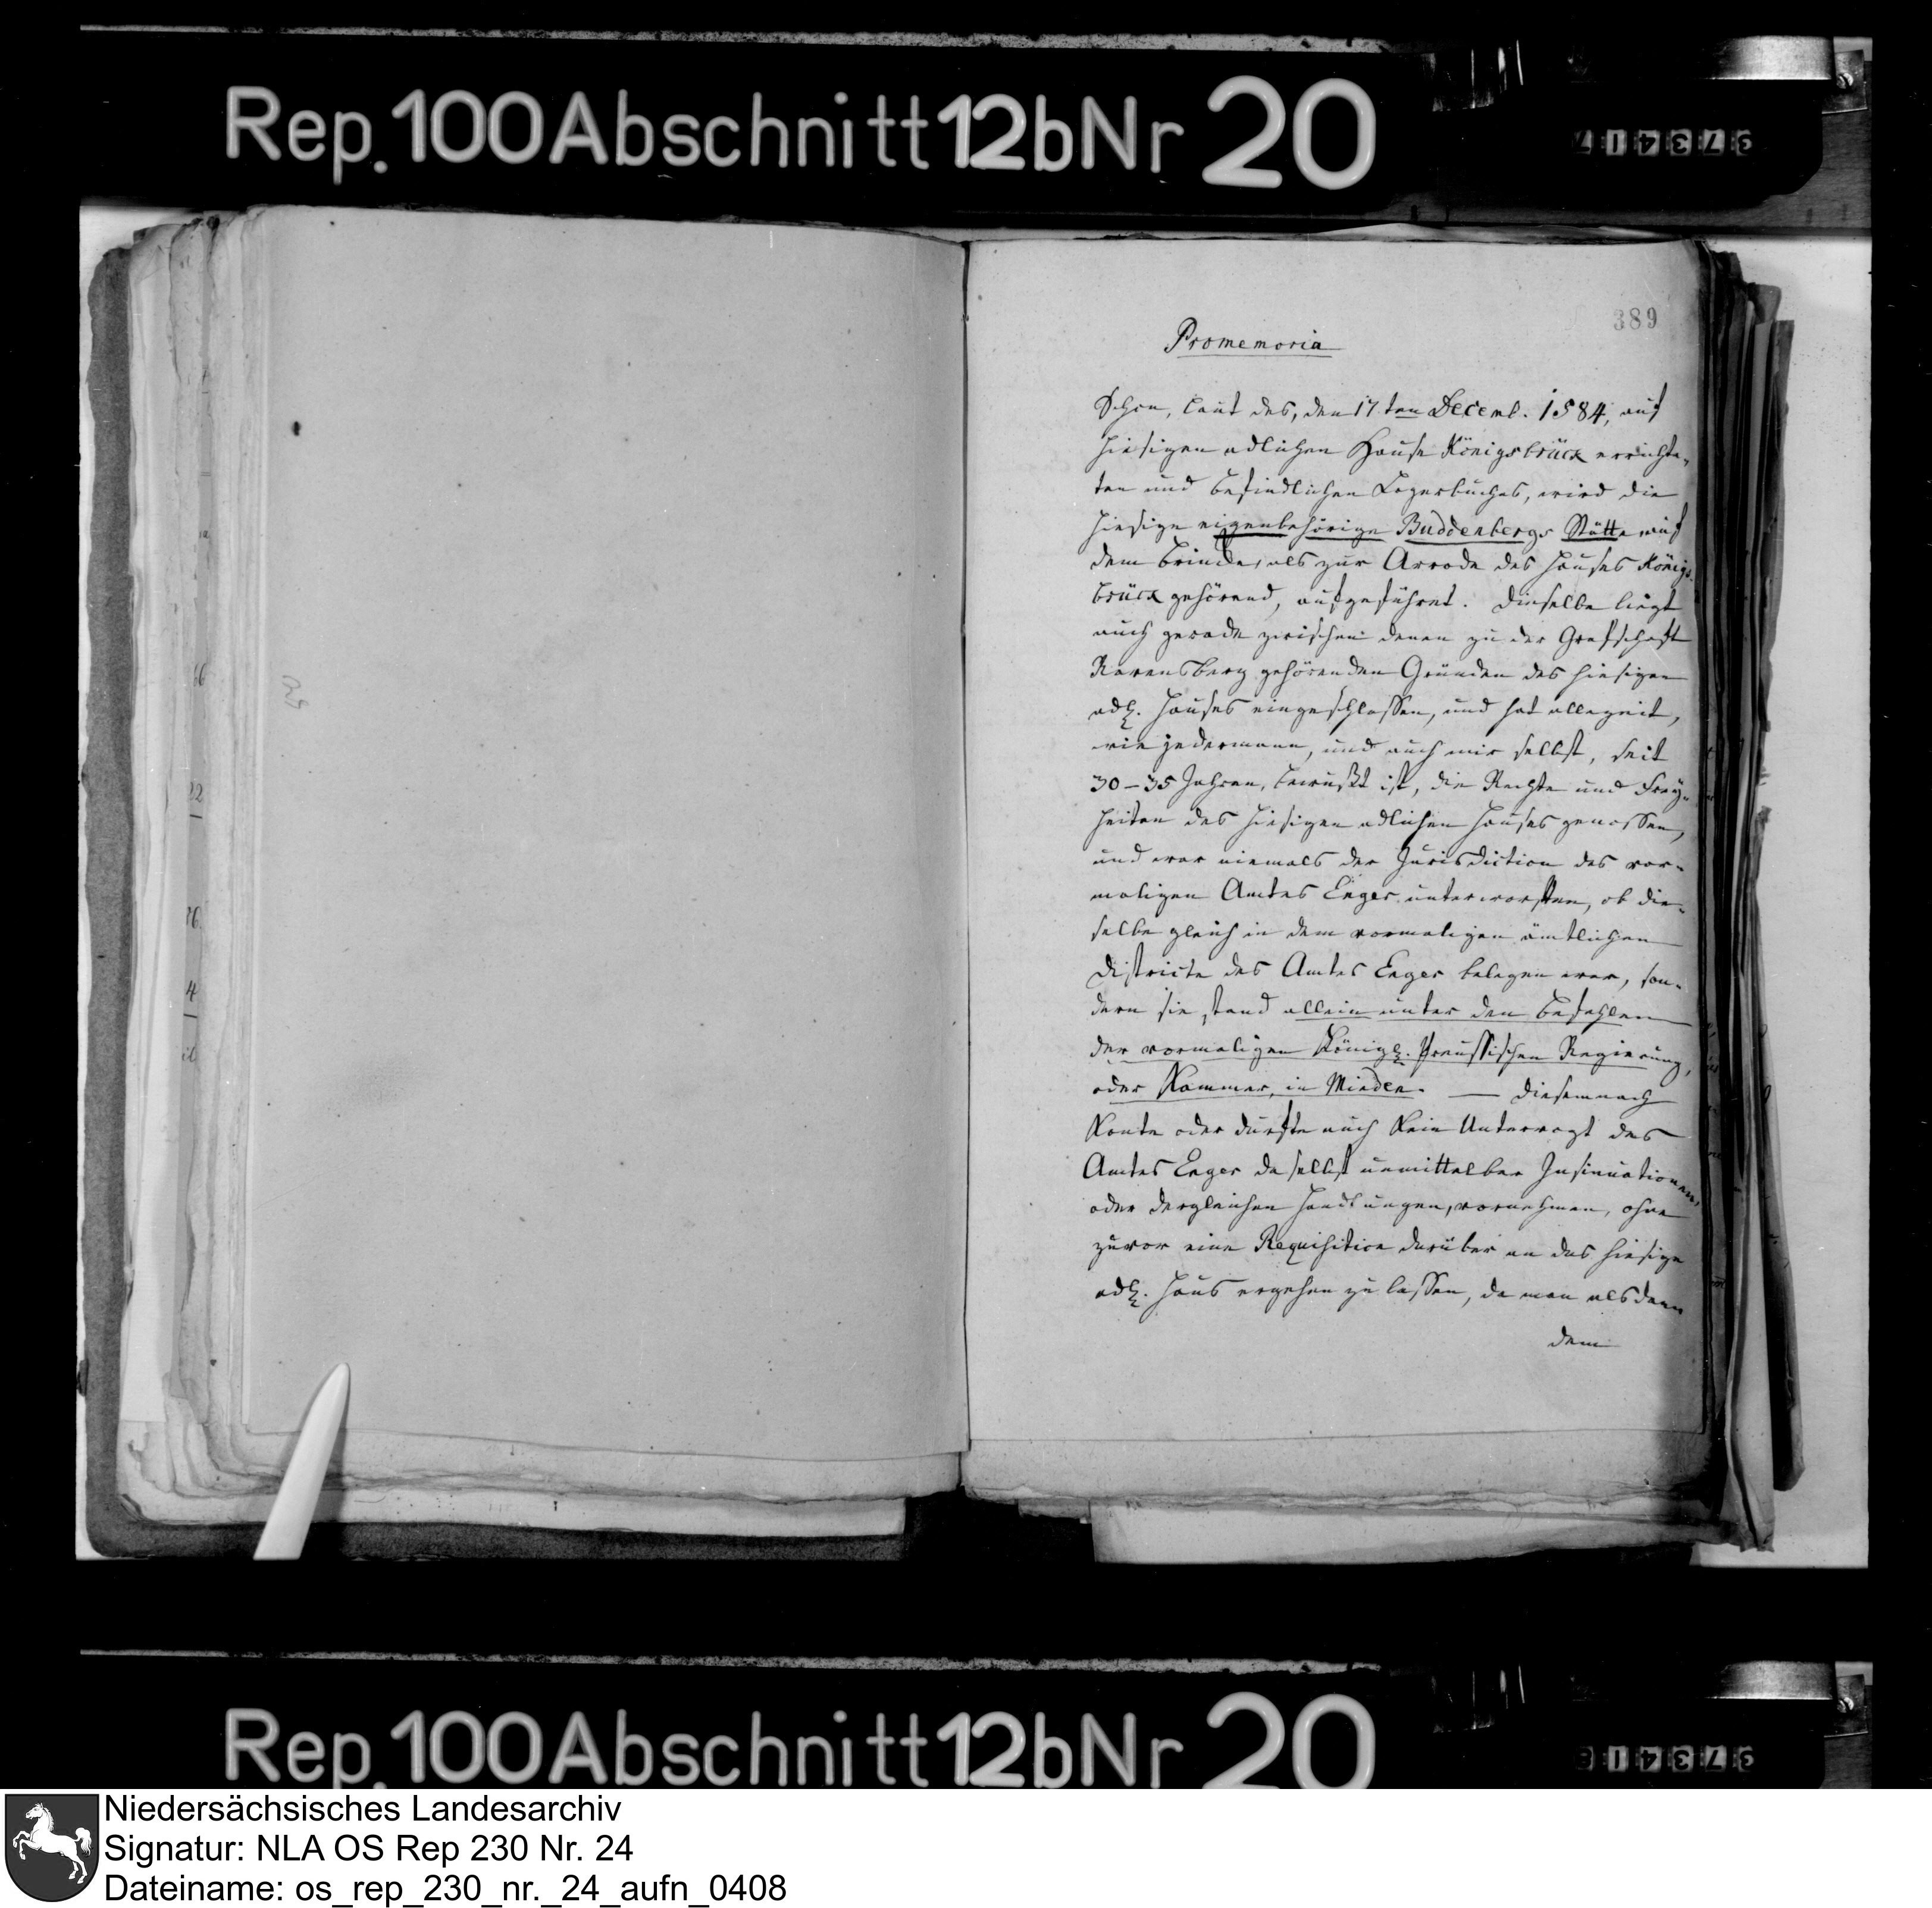 Rep. 100 Abschnitt 12b Nr 20
373417
389
Promemoria
Schon, laut des, den 17ten Decemb. 1584, auf
hiesigen adlichen Hause Königsbrück errichte-
ten und befindlichen Lagerbuches, wird die
hiesige eigenbehörige Buddenbergs Stätte auf
dem Brinke, als zur Arrode des Hauses Königs-
brück gehörend, aufgeführet. Dieselbe liegt
auch gerade zwischen denen zu der Grafschaft
Ravensberg gehörenden Gründen des hiesigen
adl. Hauses eingeschlossen, und hat allezeit,
wie jedermann, und auch mir selbst, seit
30-35 Jahren, bewußt ist, die Rechte und Frey-
heiten des hiesigen adlichen Hauses genossen,
und war niemals der Jurisdiction des vor-
maligen Amtes Enger unterworffen, ob die-
selbe gleich in dem vormaligen ämtlichen
Districte des Amtes Enger belegen war, son-
dern sie stand allein unter den Befehlen
der vormaligen Königl. Preussischen Regierung,
oder Kammer, in Minden. — Diesemnach
konte oder durfte auch kein Untervogt des
Amtes Enger daselbst unmittelbar Insinuationen,
oder dergleichen Handlungen, vornehmen, ohne
zuvor eine Requisition darüber an das hiesige
adl. Haus ergehen zu lassen, da man alsdann
dem
66
22
76.
4
Rep. 100 Abschnitt 12b Nr 20
373418
Niedersächsisches Landesarchiv
Signatur: NLA OS Rep 230 Nr. 24
Dateiname: os_rep_230_nr._24_aufn_0408